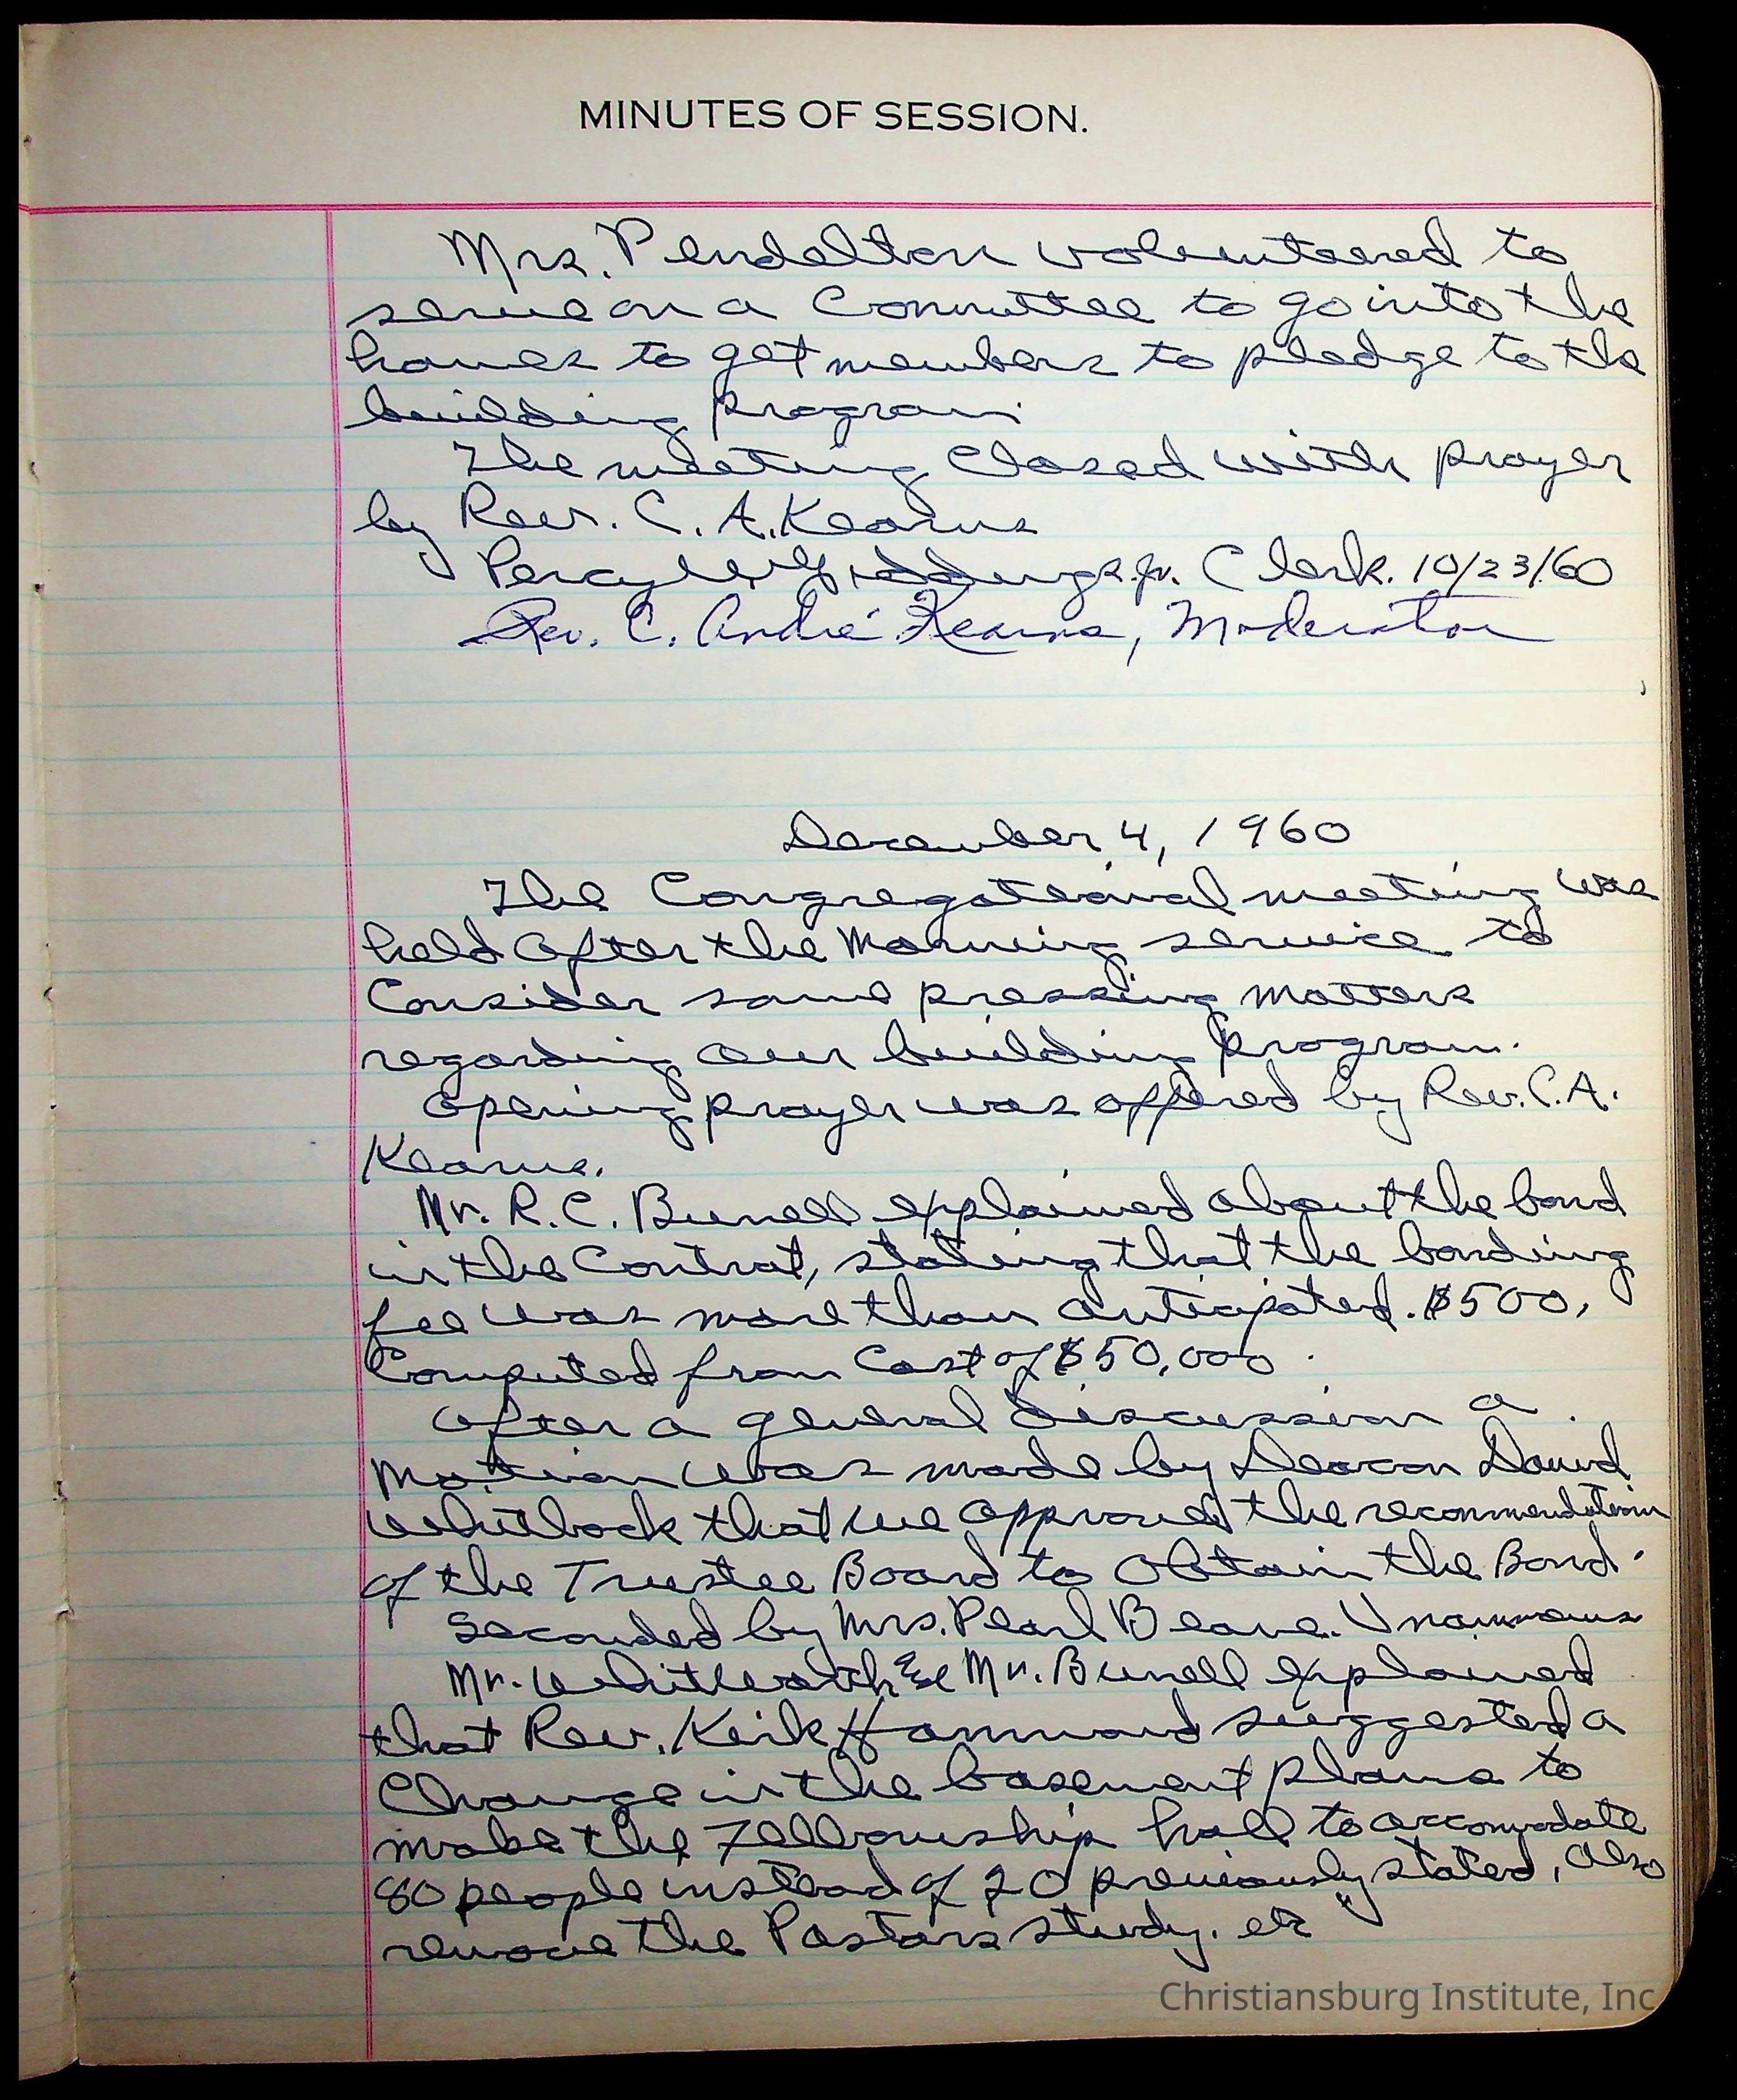 MINUTES OF SESSION.
Mrs. Pendelton volunteered to
serve on a Committee to go into the
homes to get members to pledge to the
building program.
The meeting Closed with prayer
by Rev. C. A. Kearns
Percy Giddings jr. Clerk. 10/23/60
Rev. C. André Kearns, Moderator
December 4, 1960
The Congregational meeting was
held after the Morning service to
Consider some pressing matters
regarding our building program.
Opening prayer was offered by Rev. C. A.
Kearns.
Mr. R. C. Burrell explained about the bond
in the Contrat, stating that the bonding
fee was more than anticipated. $500,
Computed from Cost of $50,000.
After a general discussion a
Motion was made by Deacon David
Whitlock that we approved the recommendation
of the Trustee Board to Obtain the Bond.
Seconded by Mrs. Pearl Beane.
Mr. Whitworth & Mr. Burrell explained
that Rev. Kerk Hammond suggested a
Change in the basement plans to
make the Fellowship hall to accomodate
80 people instead of 20 previously stated, also
remove the Pastors study. etc
Christiansburg Institute, Inc